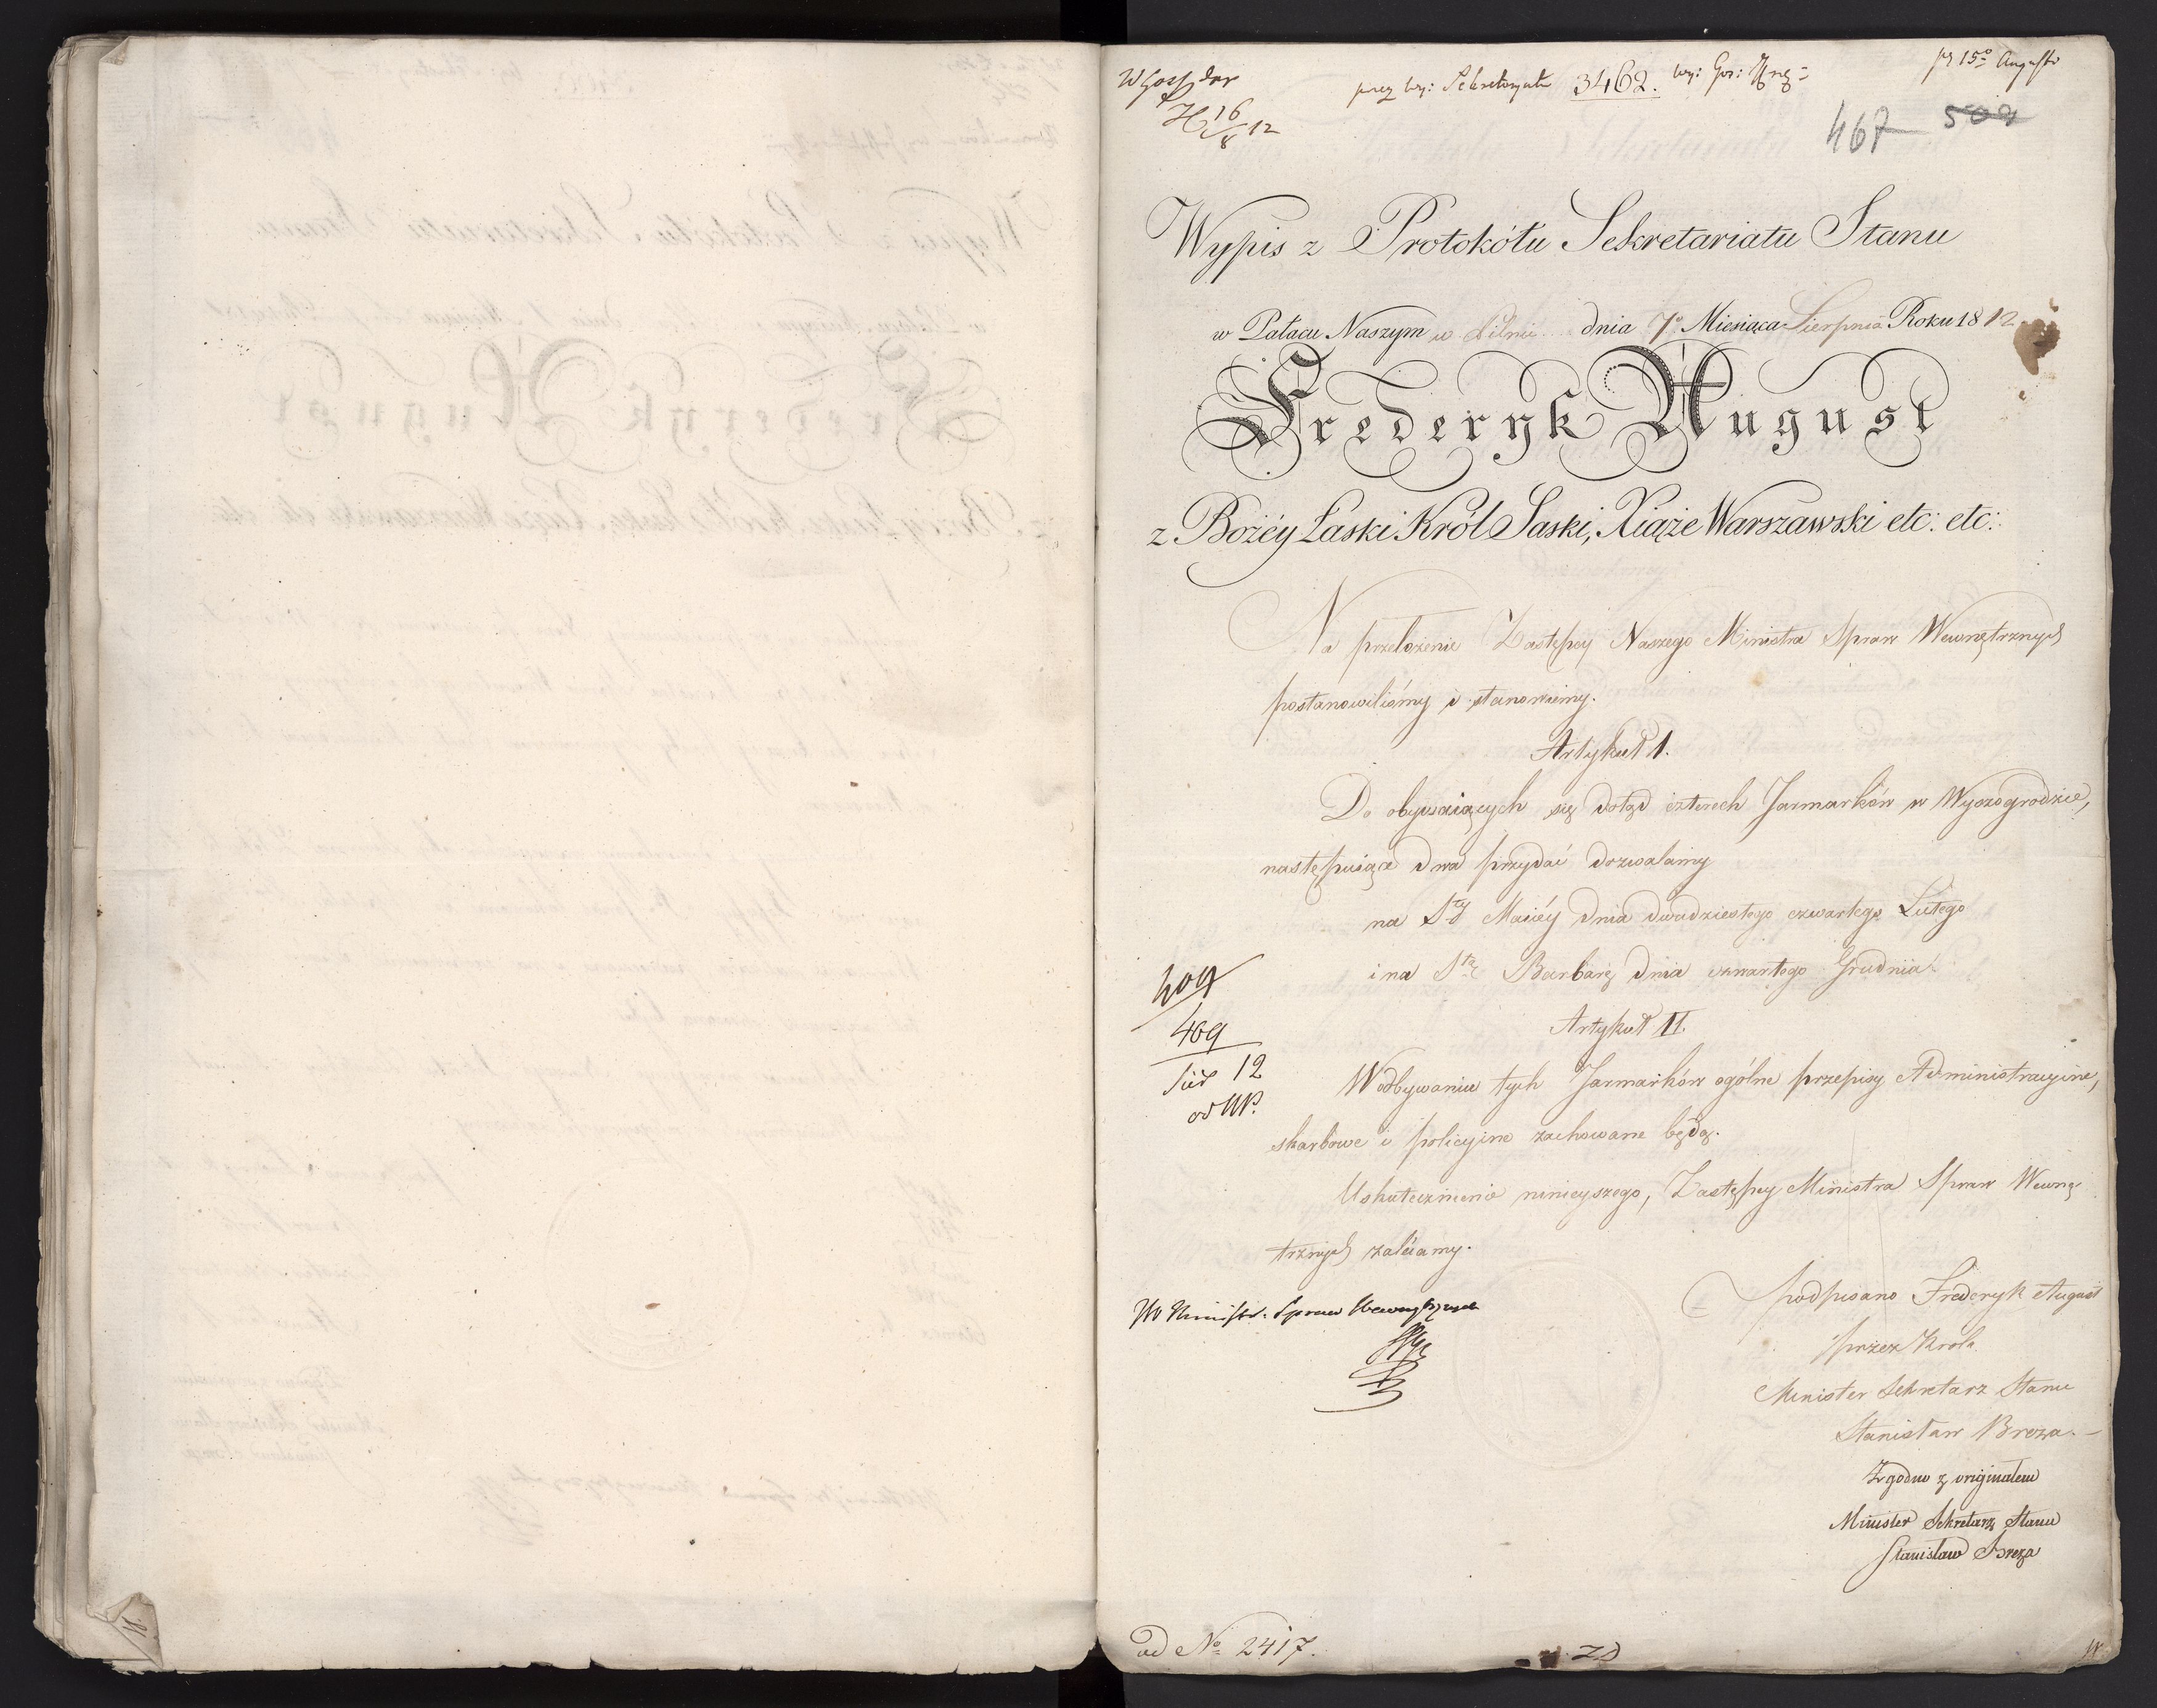 3462.
pr 15º Augusto
16/8 12
467 502
Wypis z Protokółu Sekretariatu Stanu
w Pałacu Naszym w Pilnie dnia 7º Miesiąca Sierpnia Roku 1812
Frederyk August
z Bożéy Łaski Król Saski, Xiąże Warszawski etc: etc:
Na przełożenie Zastępcy Naszego Ministra Spraw Wewnętrznych
postanowiliśmy i stanowimy.
Artykuł 1.
Do obywaiących się dotąd czterech Jarmarków w Wyszogrodzie,
następuiące dwa przydać dozwalamy
na Sty Maciéy dnia dwudziestego czwartego Lutego
i na Stą Barbarę dnia czwartego Grudnia.
409
409
Sier 12
Artykuł II.
W odbywaniu tych Jarmarków ogólne przepisy Administracyine,
skarbowe i policyine zachowane będą.
Uskutecznienie ninieyszego, Zastępcy Ministra Spraw Wewnę
trznych zalécamy.
podpisano Frederyk August
przez Króla
Minister Sekretarz Stanu
Stanisław Breza.
Zgodno z originałem
Minister Sekretarz Stanu
Stanisław Breza
Ministr. Spraw Wewnętrznych
ad No 2417.